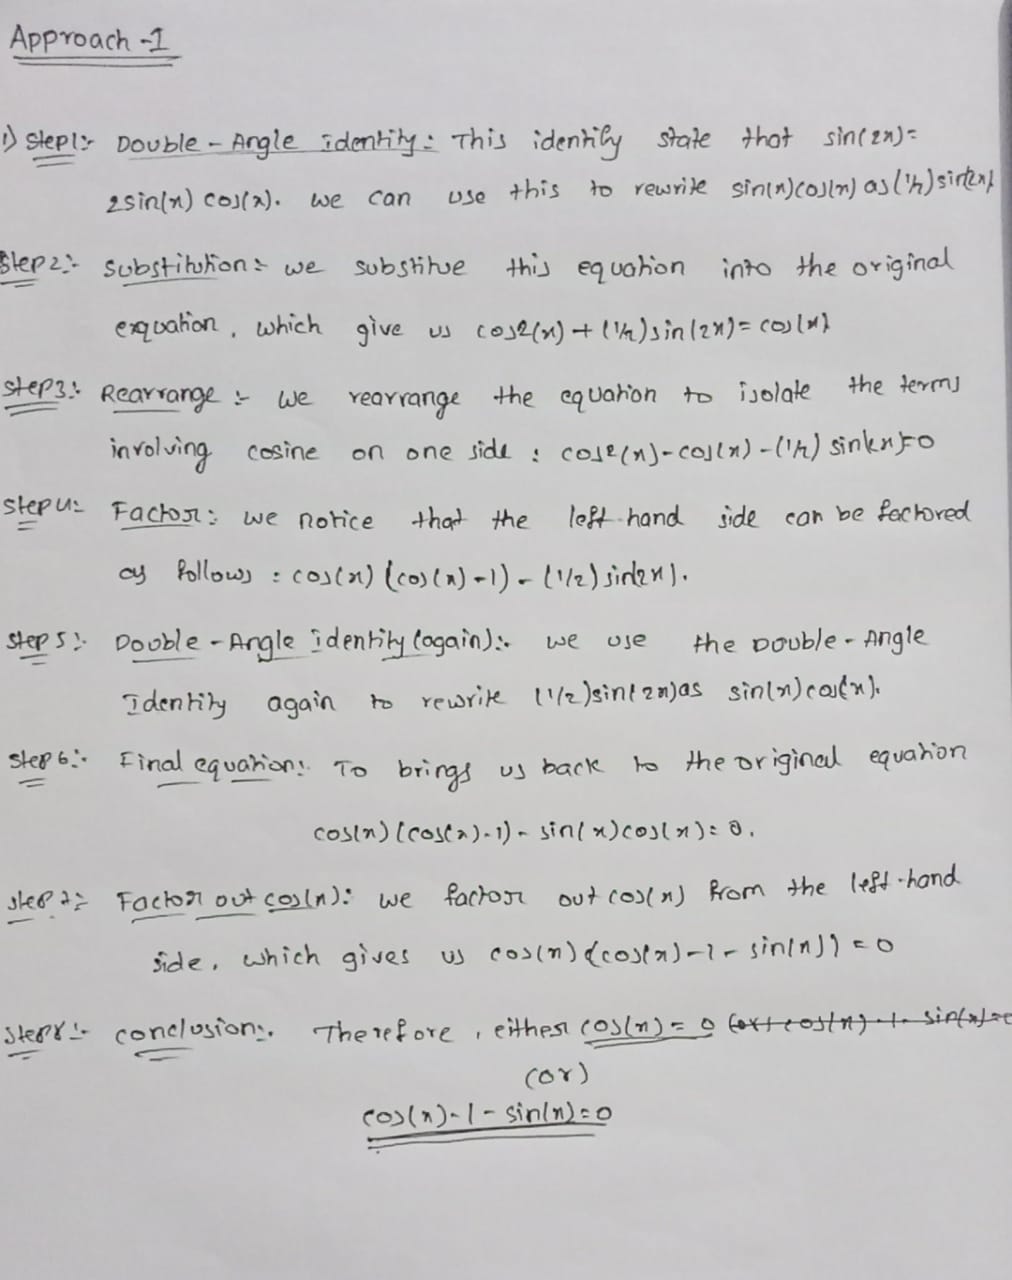 Approach -1
1) Step1:- Double - Angle identity: This identity state that sin(2x)=
2sin(x) cos(x). we can use this to rewrite sin(x)cos(x) as (1/2) sin(2x)
Step2:- Substitution:- we substitue this equation into the original
exquation, which give us cos2(x) + (1/2)sin(2x) = cos(x)
Step3:- Rearrange :- we rearrange the equation to isolate the terms
involving cosine on one side : cos2(x)-cos(x) - (1/2) sin(2x)=0
Step4:- Factor: we notice that the left-hand side can be factored
as follows : cos(x) (cos(x) -1) - (1/2) sin(2x).
Step5:- Double - Angle identity (again):- we use the Double - Angle
Identity again to rewrite (1/2)sin(2x)as sin(x)cos(x).
Step6:- Final equation: To brings us back to the original equation
cos(x) (cos(x)-1) - sin(x)cos(x)=0.
Step7:- Factor out cos(x): we factor out cos(x) from the left-hand
side, which gives us cos(x) (cos(x)-1- sin(x)) = 0
Step8:- conclusion:. Therefore , either cos(x) = 0
(or)
cos(x)-1- sin(x)=0